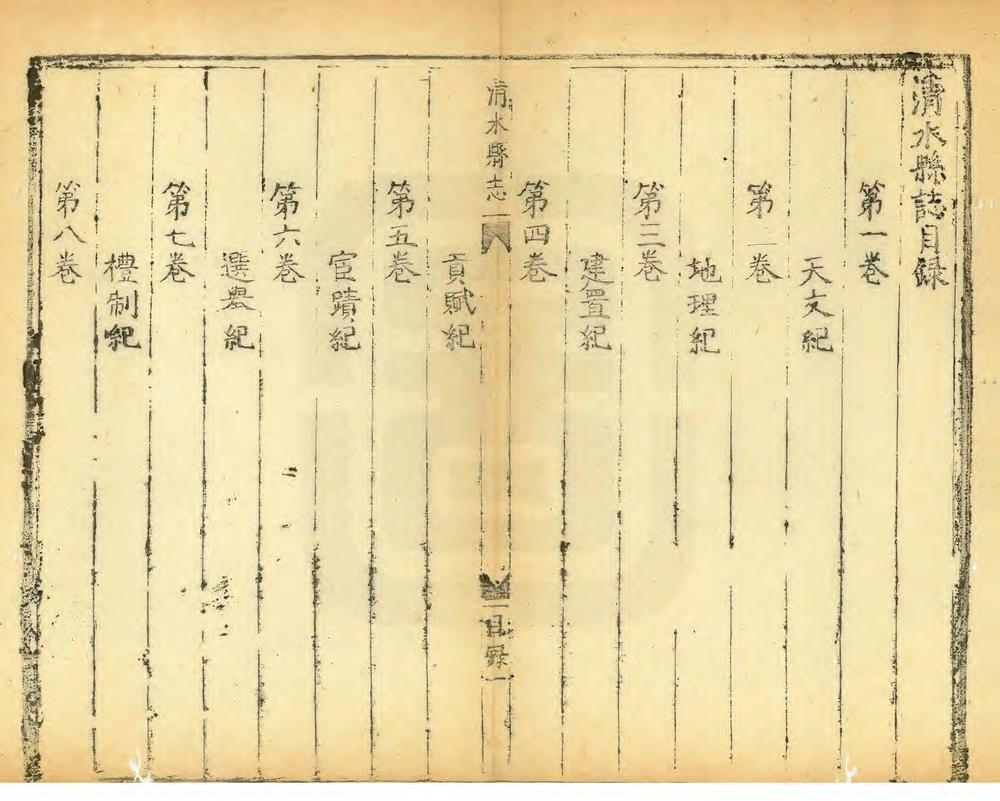 清水縣誌目録
第一巻
天文紀
第二巻
地理紀
第三巻
建置紀
第四巻
清水縣志
目録一
貢賦紀
第五巻
官蹟紀
第六巻
選舉紀
第七巻
禮制紀
第八巻